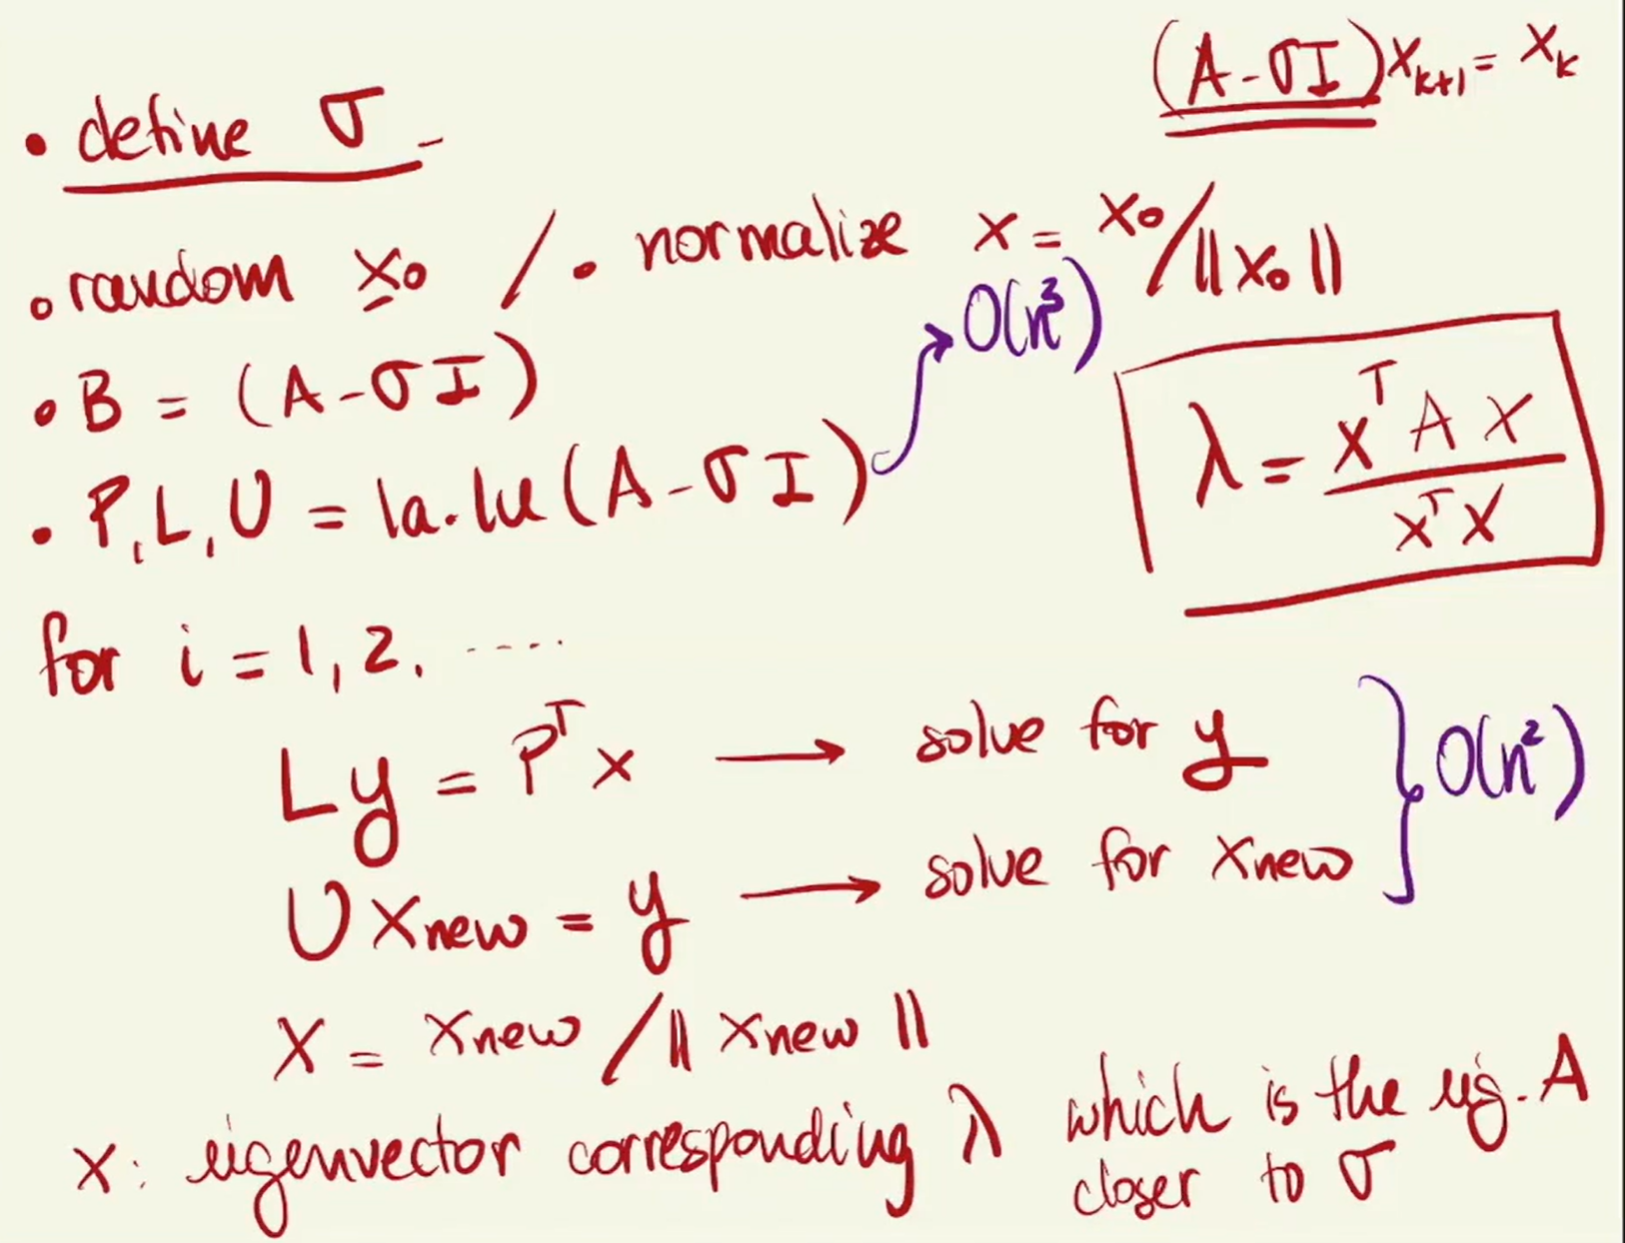 (A - σI)x_{k+1} = x_k
• define σ -
• random x₀ / • normalize x = x₀/||x₀||
• B = (A - σI)
O(n³)
• P, L, U = la.lu(A - σI)
λ = xᵀAx / xᵀx
for i = 1, 2, ....
Ly = Pᵀx → solve for y
U xnew = y → solve for xnew
O(n²)
x = xnew / || xnew ||
x: eigenvector corresponding λ which is the eig. A
closer to σ